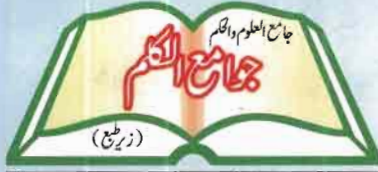 جامع العلوم والحکم
جوامع الکلم
(زیرِ طبع)